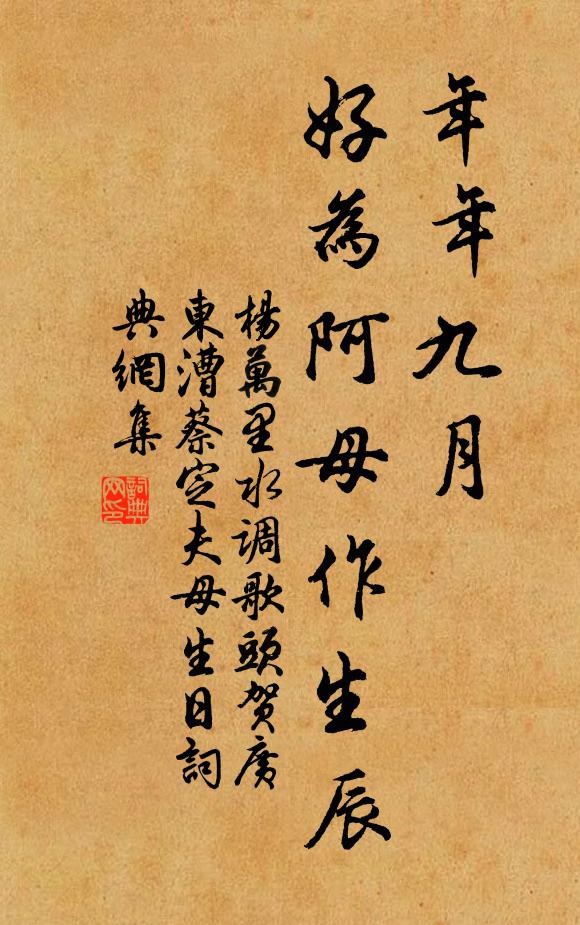 年年九月
好為阿母作生辰
楊萬里水调歌頭贺廣
東漕蔡定夫母生日詞
典網集
詞典網印